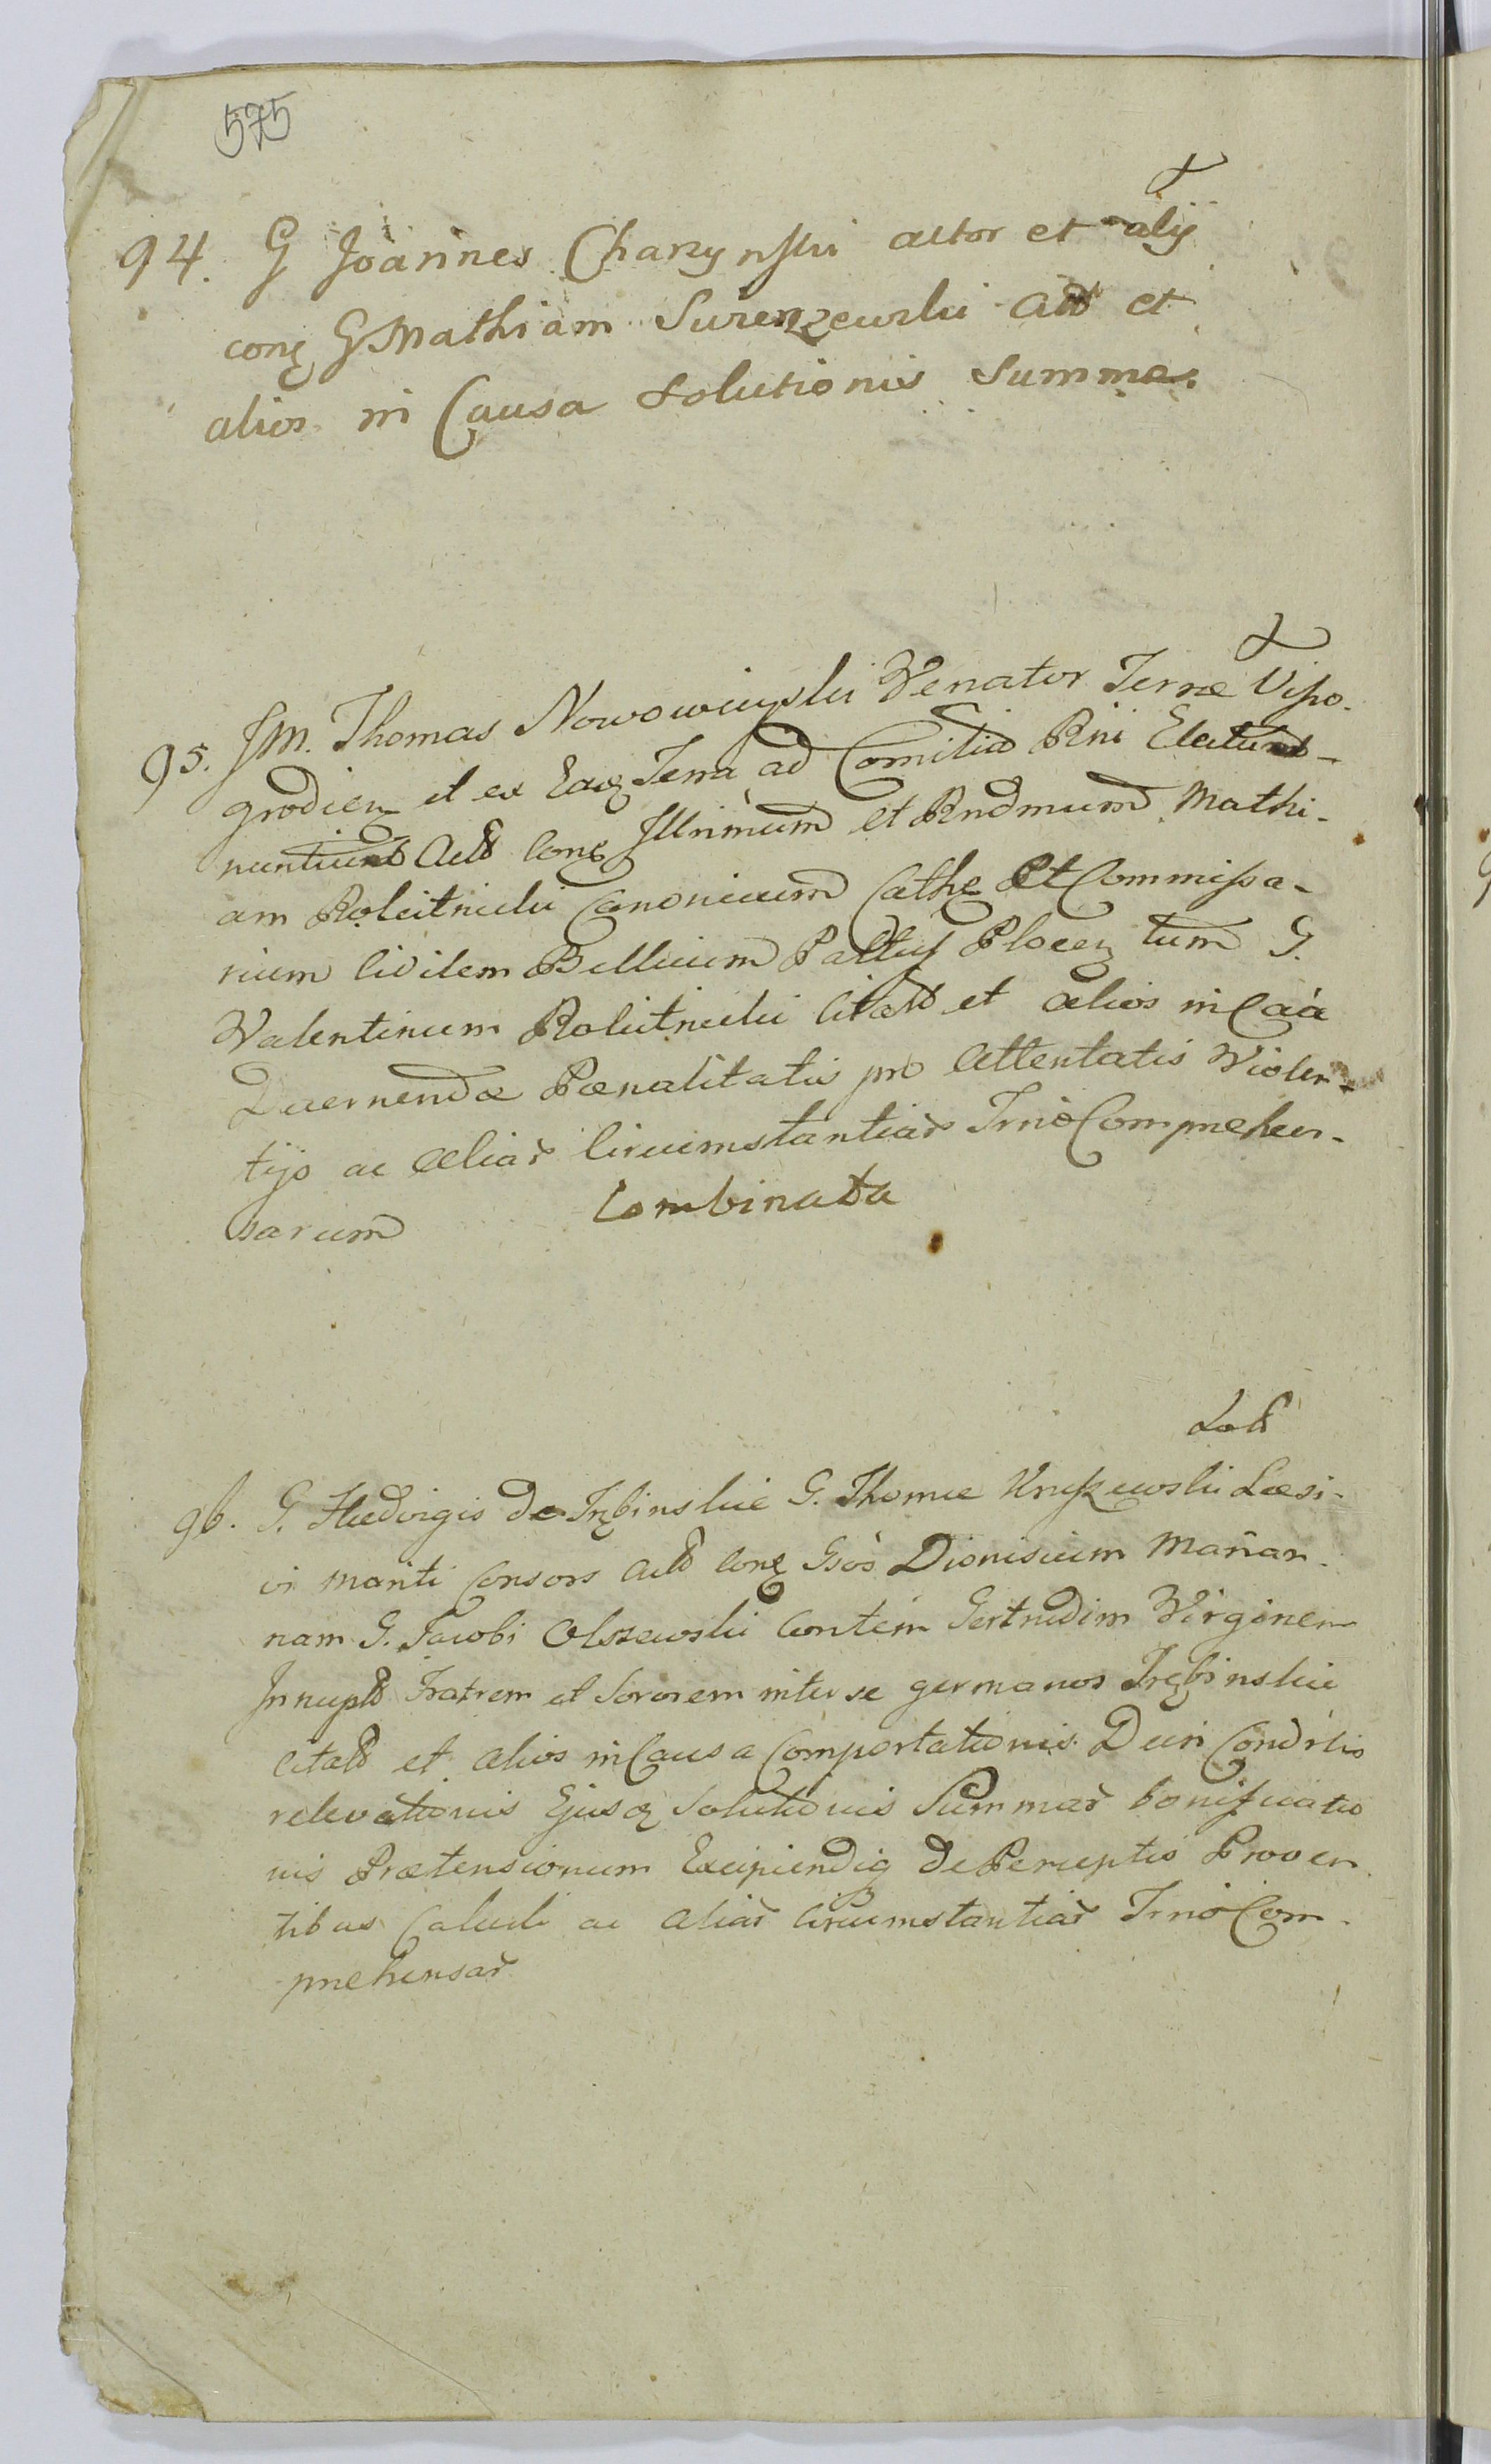 575
94. G Joannes Charzynski actor et alij
conģ G Mathiam Surenzewski Actt et
alios in Causa Solutionis Summae.
95. JM. Thomas Nowowieyski Venator Terrae Visso-
grodien et ex Eaq Terra ad Comitia Rni Electum
nuntium Actt Conq Illrimum et Rndmum Mathi-
am Rokitnicki Canonicum Cathe Et Commissa-
rium Civilem Bellicum Pallus Plocen tum G.
Valentinum Rokitnicki Citatt et alios in Caa
Decernendae Paenalitatis pro Attentatis Violen-
tijs ac aliar Circumstantiar Trno Comprehen-
sarum Combinata
96. G. Hedvigis de Trębinskie G. Thomae Kruszewski Laesi-
vi mariti Consors Actt Conq Gsos Dionisium Marian-
nam G. Jacobi Olszewski Contem Gertrudim Virginem
Innupt Fratrem et Sororem inter se germanos Trębinskie
Citatt et alios in Causa Comportationis Duri Condrlis
relevationis Ejusq Solutionis Summar bonificatio
nis Praetensionum Excipiendiq de Perceptis Proven
tibus Calculi ac aliar Circumstantiar Trno Com-
prehensar